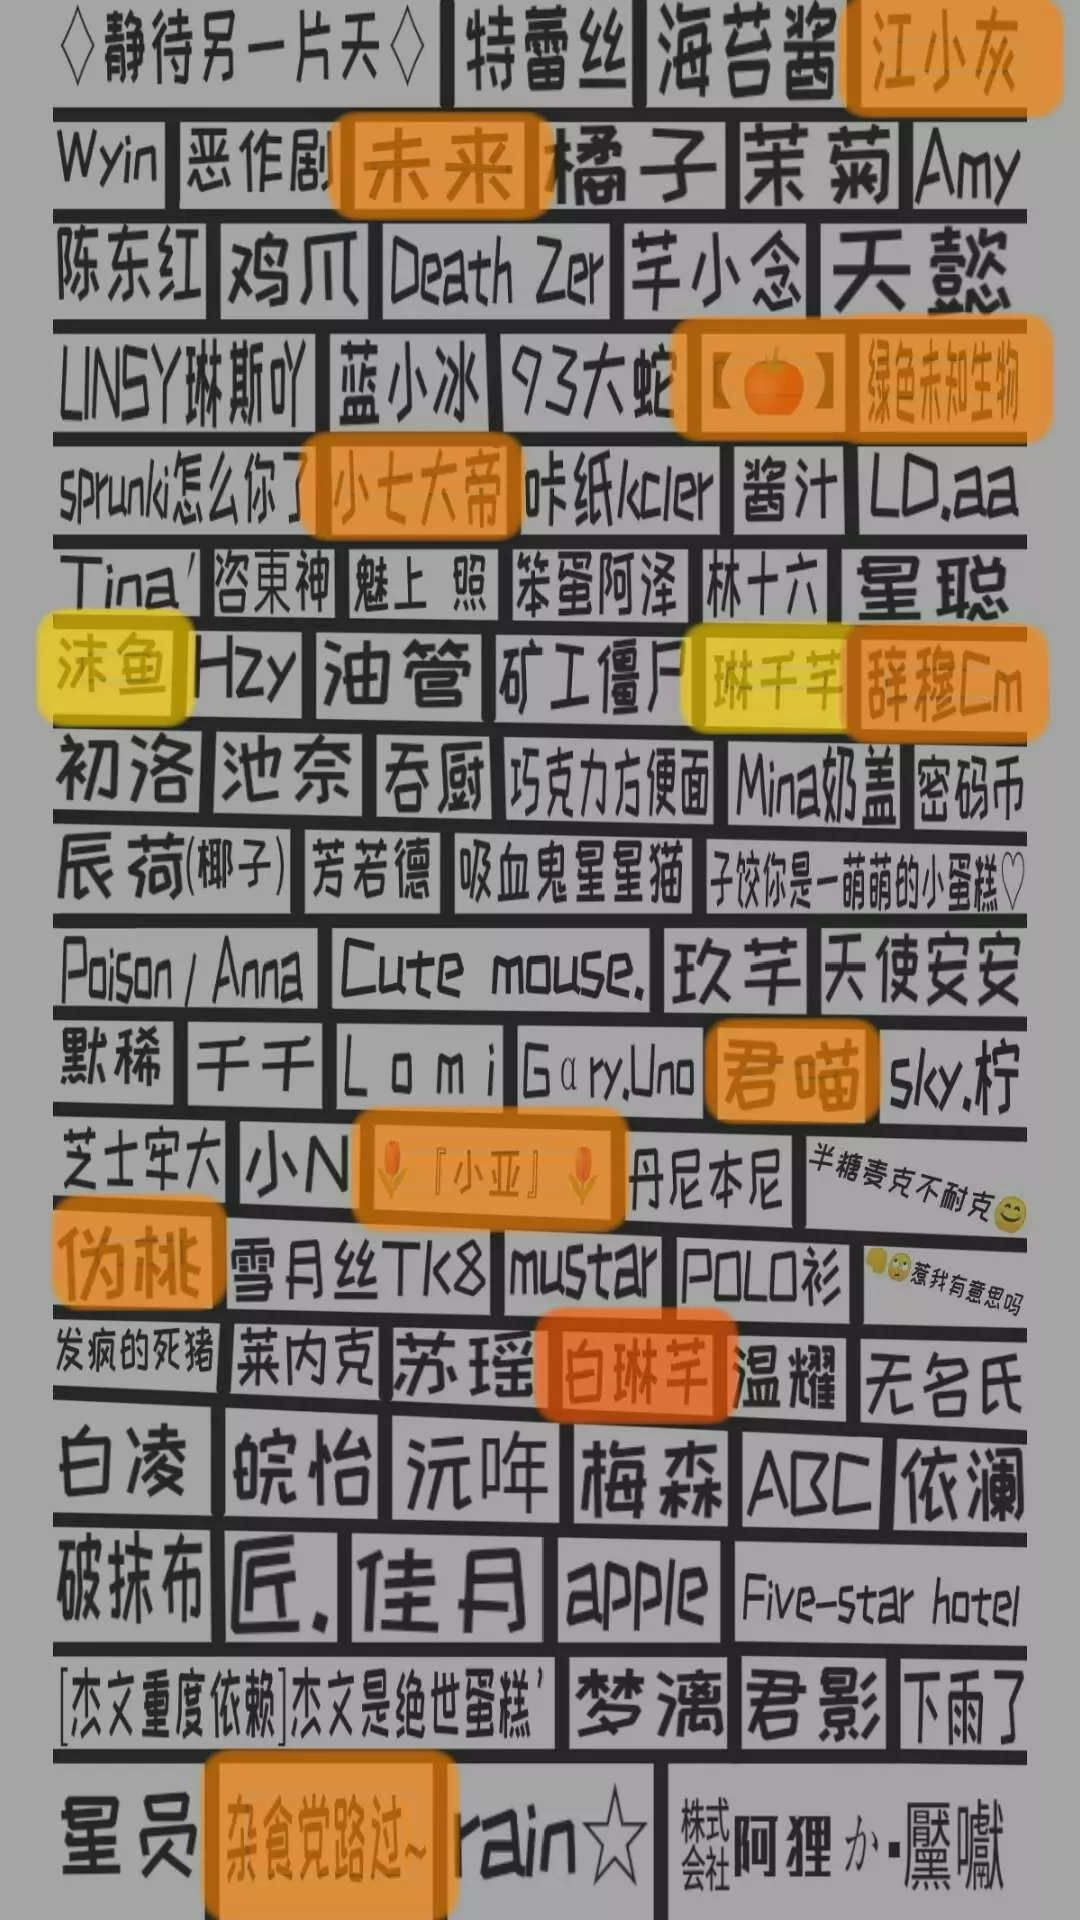 ♢静待另一片天♢ 特蕾丝 海苔酱 江小灰
Wyin 恶作剧 未来 橘子 茉菊 Amy
陈东红 鸡爪 Death Zer 芊小念 天懿
LINSY琳斯吖 蓝小冰 93大蛇 【🍅】 绿色未知生物
sprunki怎么你了 小七大帝 咔纸kcler 酱汁 LD.aa
Tina' 咨東神 魅上 照 笨蛋阿泽 林十六 星聪
沫鱼 Hzy 油管 矿工僵尸 琳千芊 辞穆Cm
初洛 池奈 吞厨 巧克力方便面 Mina奶盖 密码币
辰荷(椰子) 芳若德 吸血鬼星星猫 子饺你是一萌萌的小蛋糕♡
Poison / Anna Cute mouse. 玖芊 天使安安
默稀 千千 Lomi Gαry.Uno 君喵 sky.柠
芝士牢大 小N 🌷『小亚』🌷 丹尼本尼 半糖麦克不耐克😊
伪桃 雪月丝TK8 mustar POLO衫 🙄惹我有意思吗
发疯的死猪 莱内克 苏瑶 白琳芊 温耀 无名氏
白凌 皖怡 沅咩 梅森 ABC 依澜
破抹布 匠. 佳月 apple Five-star hotel
[杰文重度依赖]杰文是绝世蛋糕' 梦漓 君影 下雨了
星员 杂食党路过~ rain☆ 株式会社阿狸か·黶囐